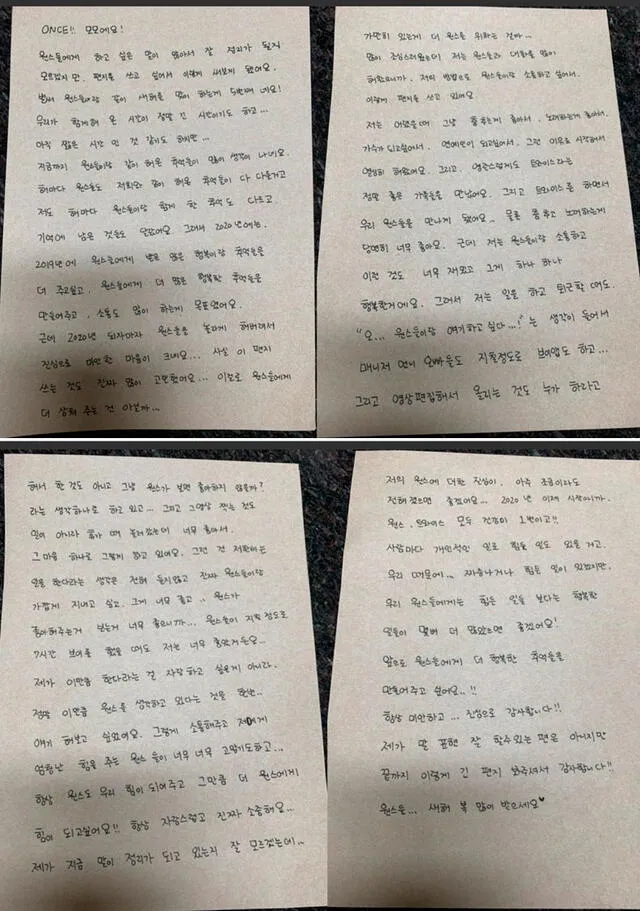 ONCE!! 모모에요!
원스들에게 하고 싶은 말이 많아서 잘 정리가 될지
모르겠지만, 편지를 쓰고 싶어서 이렇게 써보게 됐어요.
벌써 원스들이랑 같이 새해를 맞이 하는게 5번째네요!
우리가 함께해 온 시간이 정말 긴 시간이기도 하고...
아직 짧은 시간 인 것 같기도 하지만...
지금까지 원스들이랑 같이 해온 추억들이 많이 생각이 나네요.
해마다 원스들도 저희와 같이 해온 추억들이 다 다를거고
저도 해마다 원스들이랑 함께 한 추억도 다르고,
기억에 남은 것들도 달랐어요. 그래서 2020년에는,
2019년에 원스들에게 받은 많은 행복이랑 추억들을
더 주고싶고, 원스들에게 더 많은 행복한 추억들을
만들어주고, 소통도 많이 하는게 목표였어요.
근데 2020년 되자마자 원스들을 놀라게 해버려서
진심으로 미안한 마음이 크네요... 사실 이 편지
쓰는 것도 진짜 많이 고민했어요... 이걸로 원스들에게
더 상처 주는 건 아닐까...
가만히 있는게 더 원스를 위하는 걸까...
많이 조심스러웠는데 저는 원스들과 대화를 많이
해왔으니까, 저의 방법으로 원스들이랑 소통하고 싶어서.
이렇게 편지를 쓰고 있어요.
저는 어렸을때 그냥 춤추는게 좋아서, 노래하는게 좋아서.
가수가 되고싶어서, 연예인이 되고싶어서, 그런 이유로 시작해서
열심히 해왔어요. 그리고, 영광스럽게도 트와이스라는
정말 좋은 가족들을 만났어요. 그리고 트와이스를 하면서
우리 원스들을 만나게 됐어요.. 물론 춤추고 노래하는게
당연히 너무 좋아요. 근데 저는 원스들이랑 소통하고
이런 것도 너무 재밌고 그게 하나 하나
행복한거에요. 그래서 저는 일을 하고 퇴근할 때도.
"오... 원스들이랑 얘기하고 싶다...!" 는 생각이 들어서
매니저 언니 오빠들도 지칠정도로 브이앱도 하고...
그리고 영상편집해서 올리는 것도 누가 하라고
해서 한 것도 아니고 그냥 원스가 보면 좋아하지 않을까?
라는 생각하나로 하고 있고... 그리고 그 영상 찍는 것도
일이 아니라 휴가 때 놀러갔는데 너무 좋아서.
그 마음 하나로 그렇게 하고 있어요. 그런 건 저한테는
일을 한다라는 생각은 전혀 들지않고 진짜 원스들이랑
가깝게 지내고 싶고. 그게 너무 좋고.. 원스가
좋아해주는거 보는게 너무 좋으니까... 원스들이 지칠 정도로
7시간 브이앱을 했을 때도 저는 너무 좋았거든요...
제가 이만큼 한다라는 걸 자랑하고 싶은게 아니라.
정말 이만큼 원스를 생각하고 있다는 것을 한번..
얘기 해보고 싶었어요. 그렇게 소통해주고 저에게
엄청난 힘을 주는 원스 들이 너무 너무 고맙기도하고...
항상 원스도 우리 힘이 되어주고 그만큼 더 원스에게
힘이 되고싶어요!! 항상 자랑스럽고 진짜 소중해요...
제가 지금 말이 정리가 되고 있는지 잘 모르겠는데...
저의 원스에 대한 진심이. 아주 조금이라도
전해졌으면 좋겠어요... 2020년 이제 시작이니까.
원스, 트와이스 모두 건강이 1번이고!!
사람마다 개인적인 일로 힘들 일도 있을 거고.
우리 때문에... 짜증나거나 힘든 일이 있겠지만.
우리 원스들에게는 힘든 일들 보다는 행복한
일들이 몇배 더 많았으면 좋겠어요!
앞으로 원스들에게 더 행복한 추억들을
만들어주고 싶어요..!!
항상 미안하고... 진심으로 감사합니다!!
제가 말 표현 잘 할수있는 편은 아니지만
끝까지 이렇게 긴 편지 봐주셔서 감사합니다!!
원스들... 새해 복 많이 받으세요♥